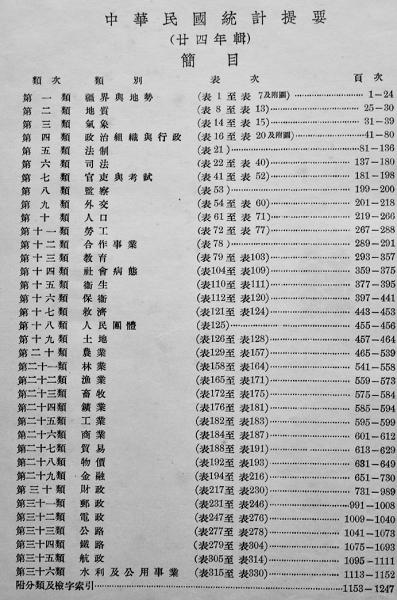 中華民國統計提要
(廿四年輯)
簡目
類次 類別 表次 頁次
第一類 疆界與地勢 (表1至表7及附圖) 1-24
第二類 地質 (表8至表13) 25-30
第三類 氣象 (表14至表15) 31-39
第四類 政治組織與行政 (表16至表20及附圖) 41-80
第五類 法制 (表21) 81-136
第六類 司法 (表22至表40) 137-180
第七類 官吏與考試 (表41至表52) 181-198
第八類 監察 (表53) 199-200
第九類 外交 (表54至表60) 201-218
第十類 人口 (表61至表71) 219-266
第十一類 勞工 (表72至表77) 267-288
第十二類 合作事業 (表78) 289-291
第十三類 教育 (表79至表103) 293-357
第十四類 社會病態 (表104至表109) 359-375
第十五類 衞生 (表110至表111) 377-395
第十六類 保衞 (表112至表120) 397-441
第十七類 救濟 (表121至表124) 443-453
第十八類 人民團體 (表125) 455-456
第十九類 土地 (表126至表128) 457-464
第二十類 農業 (表129至表157) 465-539
第二十一類 林業 (表158至表164) 541-558
第二十二類 漁業 (表165至表171) 559-573
第二十三類 畜牧 (表172至表175) 575-584
第二十四類 鑛業 (表176至表181) 585-594
第二十五類 工業 (表182至表183) 595-599
第二十六類 商業 (表184至表187) 601-612
第二十七類 貿易 (表188至表191) 613-629
第二十八類 物價 (表192至表193) 631-649
第二十九類 金融 (表194至表216) 651-730
第三十類 財政 (表217至表230) 731-989
第三十一類 郵政 (表231至表246) 991-1008
第三十二類 電政 (表247至表276) 1009-1040
第三十三類 公路 (表277至表278) 1041-1073
第三十四類 鐵路 (表279至表304) 1075-1093
第三十五類 航政 (表305至表314) 1095-1111
第三十六類 水利及公用事業 (表315至表330) 1113-1152
附分類及檢字索引 1153-1247